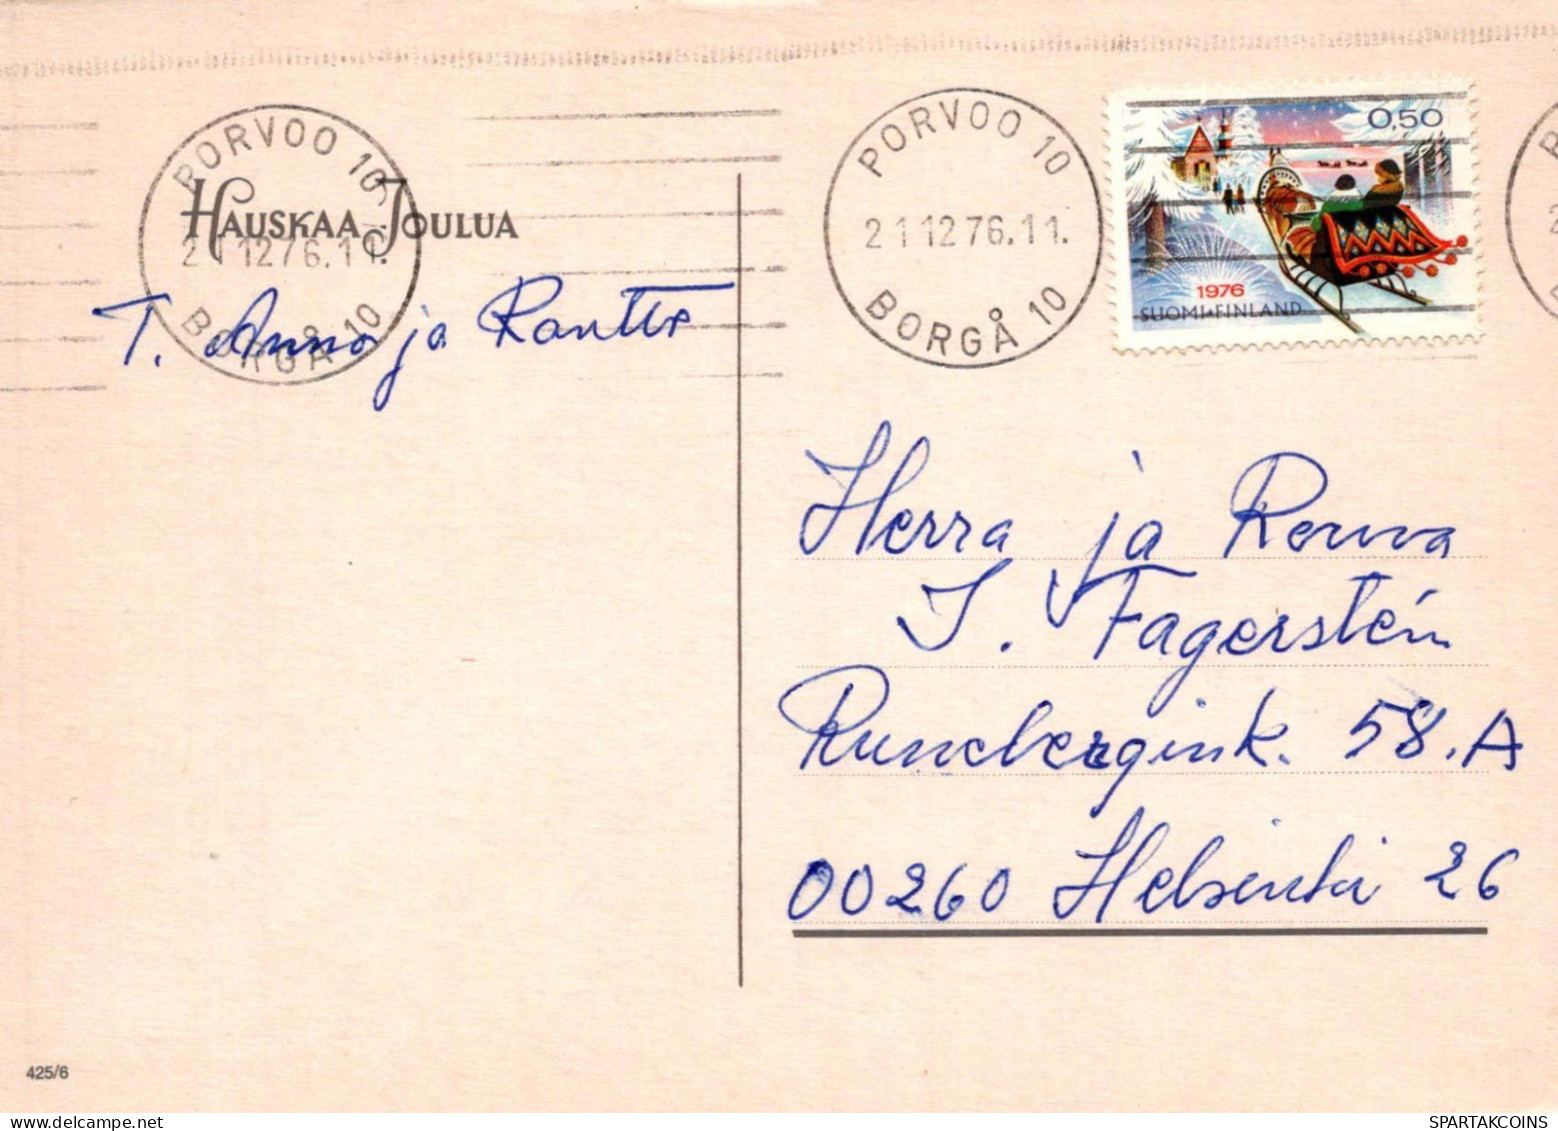 PORVOO 10
21 12 76. 11.
BORGÅ 10
HAUSKAA JOULUA
T. Anna ja Rantte
PORVOO 10
21 12 76. 11.
BORGÅ 10
0,50
1976
SUOMI-FINLAND
Herra ja Rouva
J. Fagerstén
Runebergink. 58.A
00260 Helsinki 26
425/6
SPARTAKCOINS